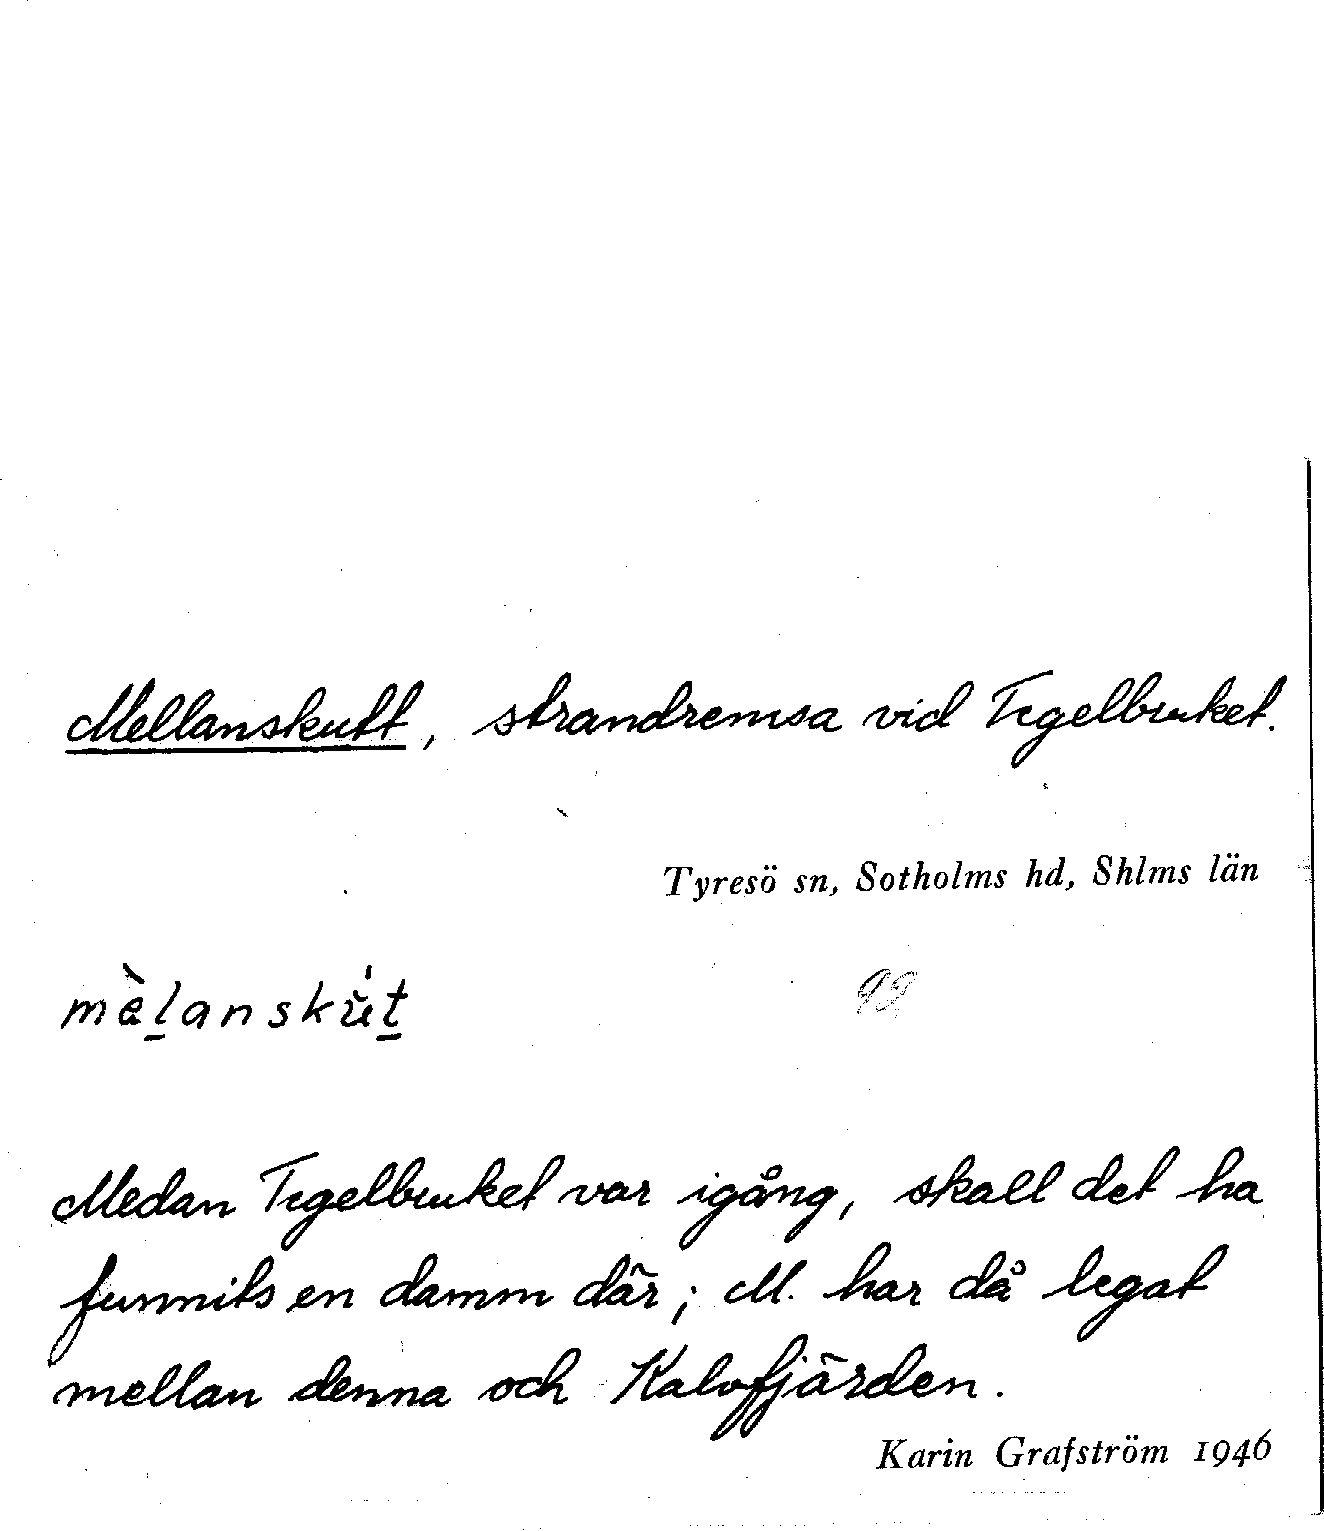 Mellanskutt, strandremsa vid Tegelbruket.
Tyresö sn, Sotholms hd, Shlms län
mèlanskút
99
Medan Tegelbruket var igång, skall det ha
funnits en damm där; M. har då legat
mellan denna och Kalvfjärden.
Karin Grafström 1946